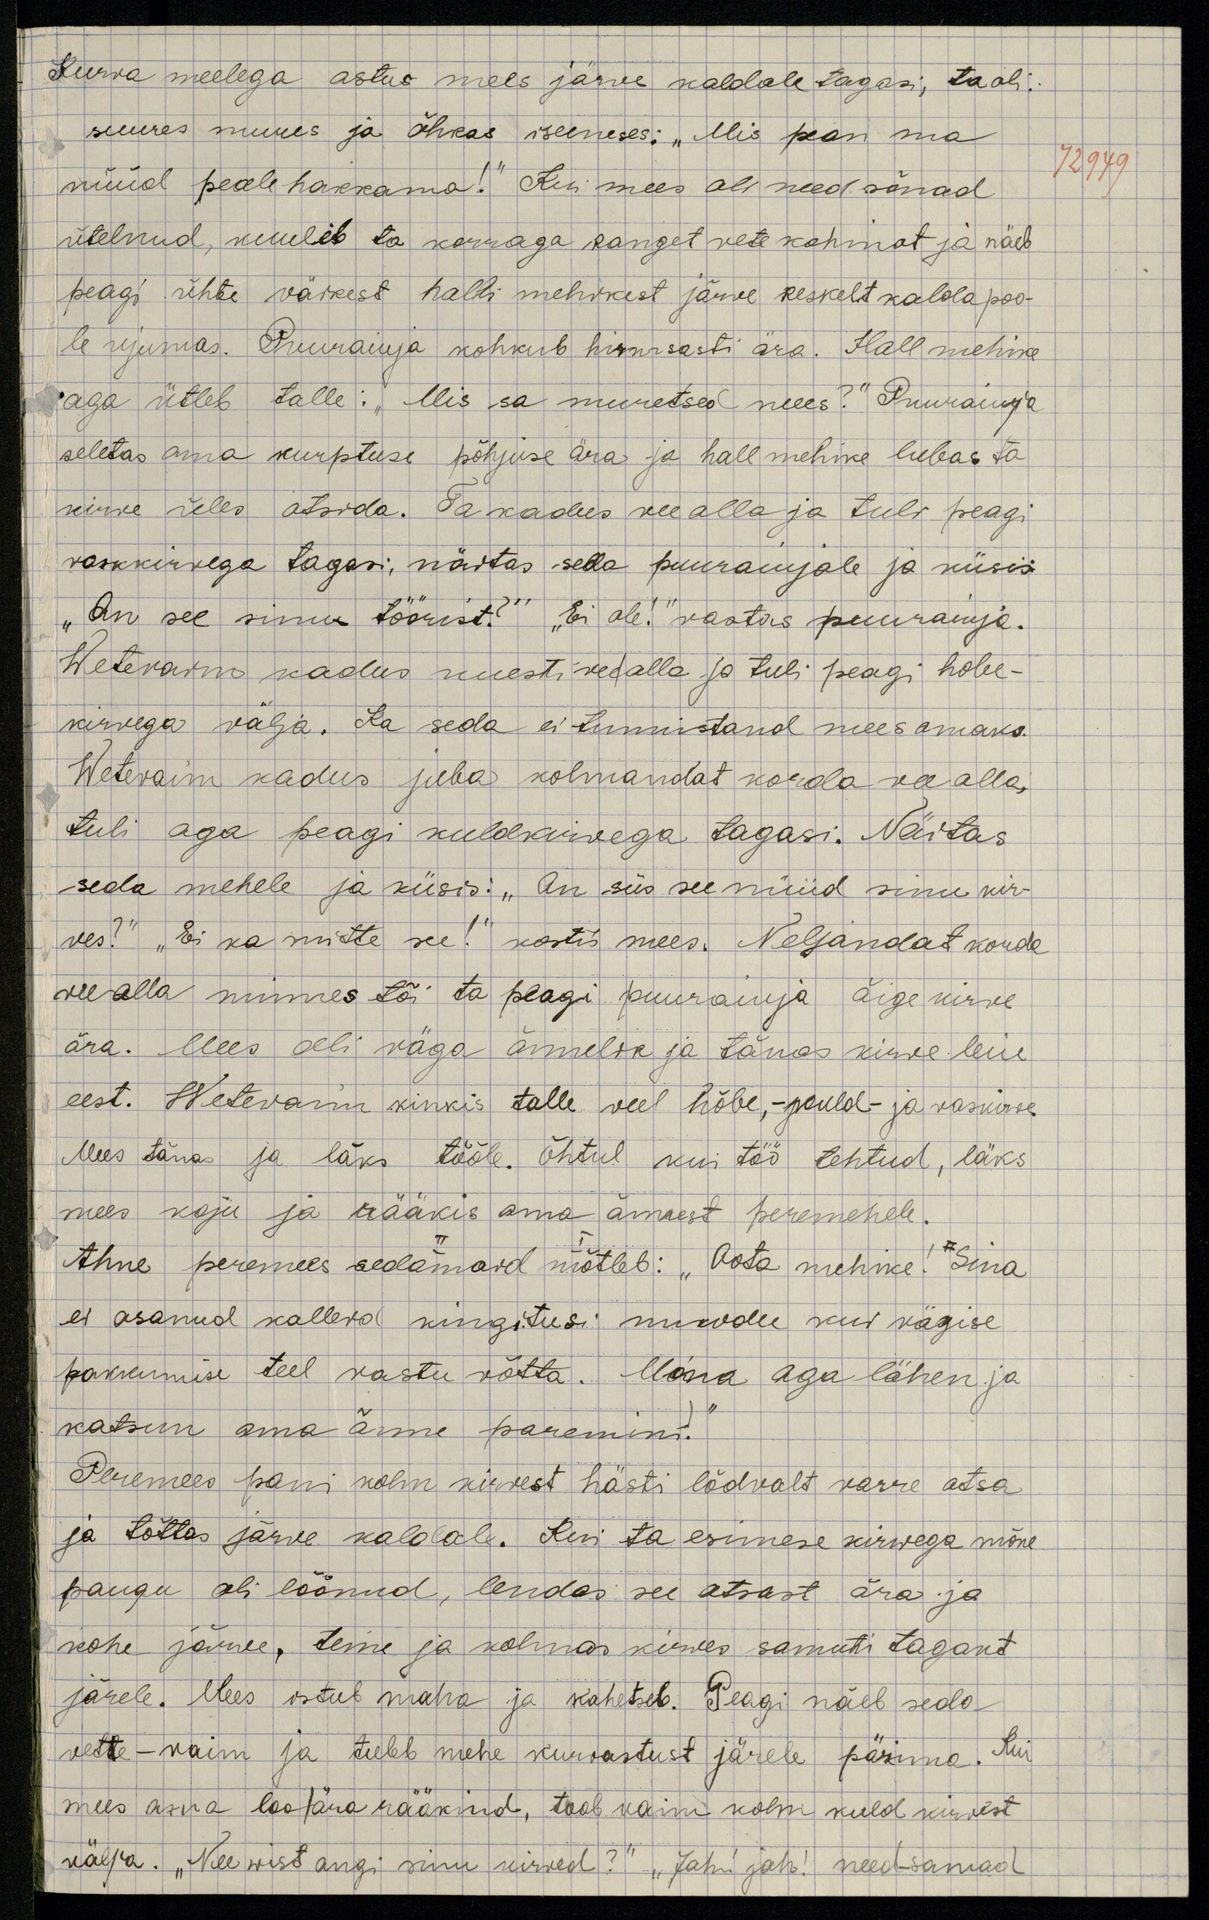 Kurva meelega astus mees järve kaldale tagasi, ta oli
suures mures ja õhkas iseeneses: „Mis pean ma
72949
nüüd peale hakkama!" Kui mees oli need sõnad
ütelnud, kuuleb ta korraga kanget vete kohinat ja näeb
peagi ühte väikest halli mehikest järve keskelt kalda poo-
le ujumas. Puuraiuja kohkub hirmsasti ära. Hall mehike
aga ütleb talle: „Mis sa muretsed mees?" Puuraiuja
seletas oma kurbtuse põhjuse ära ja hall mehike lubas ta
kirve üles otsida. Ta kadus vee alla ja tuli peagi
vaskkirvega tagasi, näitas seda puuraiujale ja küsis
„On see sinu tööriist?" „Ei ole!" vastas puuraiuja.
Wetevaim kadus uuesti vee alla ja tuli peagi hõbe-
kirvega välja. Ka seda ei tunnistand mees omaks.
Wetevaim kadus juba kolmandat korda vee alla,
tuli aga peagi kuldkirvega tagasi. Näitas
seda mehele ja küsis: „On siis see nüüd sinu kir-
ves?" „Ei ka mitte see!" kostis mees. Neljandat korda
vee alla minnes tõi ta peagi puuraiuja õige kirve
ära. Mees oli väga õnnelik ja tänas kirve leiu
eest. Wetevaim kinkis talle veel hõbe,- kuld- ja vaskirve
Mees tänas ja läks tööle. Õhtul kui töö tehtud, läks
mees koju ja rääkis oma õnnest peremehele.
Ahne peremees sedamaid mõtleb: „Oota mehike! Sina
ei osanud kalleid kingitusi muidu kui vägise
pakkumise teel vastu võtta. Mina aga lähen ja
katsun oma õnne paremini."
Peremees pani kolm kirvest hästi lõdvalt varre otsa
ja tõttas järve kaldale. Kui ta esimese kirwega mõne
paugu oli löönud, lendas see otsast ära ja
kohe järve, teine ja kolmas kirves samuti tagant
järele. Mees istub maha ja kahetseb. Peagi näeb seda
vette-vaim ja tuleb mehe kurvastust järele pärima. Kui
mees asna loo ära rääkind, toob vaim kolm kuld kirvest
välja. „Nee wist ongi sinu kirved?" „Jah! jah! need-samad